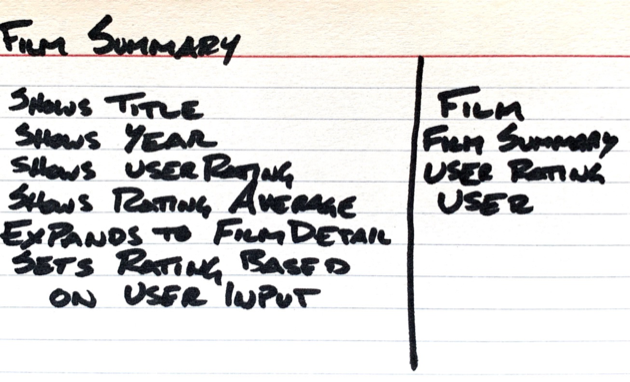 FILM SUMMARY
SHOWS TITLE
SHOWS YEAR
SHOWS USER RATING
SHOWS RATING AVERAGE
EXPANDS TO FILM DETAIL
SETS RATING BASED
ON USER INPUT
FILM
FILM SUMMARY
USER RATING
USER